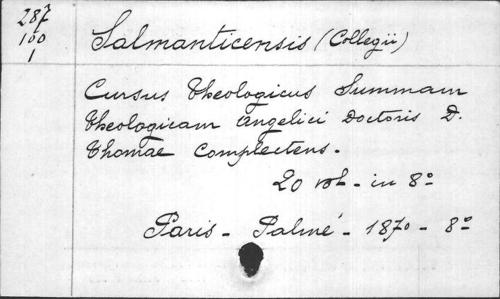 287
100
1
Salmanticensis (Collegii)
Cursus Theologicus Summam
Theologicam Angelici Doctoris D.
Thomae Complectens.
20 vol. - in 8°
Paris - Palmé - 1870 - 8°